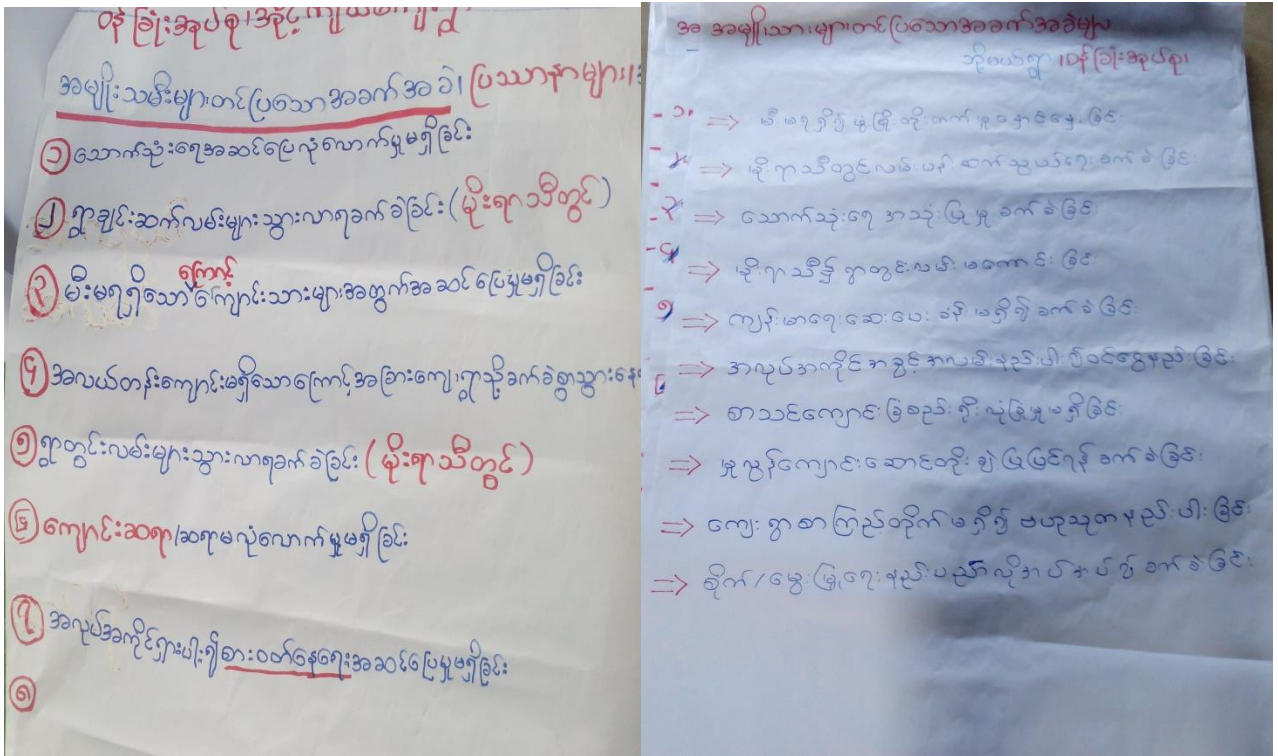 ဝန်ခြုံးအုပ်စု၊
အမျိုးသမီးများတင်ပြသောအခက်အခဲ၊ ပြဿာနာများ၊
၁ သောက်သုံးရေအဆင်ပြေလုံလောက်မှုမရှိခြင်း
၂ ရွာချင်းဆက်လမ်းများသွားလာရခက်ခဲခြင်း (မိုးရာသီတွင်)
ကြောင့်
၃ မီးမရရှိသော ကျောင်းသားများအတွက်အဆင်ပြေမှုမရှိခြင်း
၄ အလယ်တန်းကျောင်းမရှိသောကြောင့်အခြားကျေးရွာသို့ခက်ခဲစွာသွားနေ
၅ ရွာတွင်းလမ်းများသွားလာရခက်ခဲခြင်း (မိုးရာသီတွင်)
၆ ကျောင်းဆရာ/ဆရာမလုံလောက်မှုမရှိခြင်း
၇ အလုပ်အကိုင်ရှားပါး၍စားဝတ်နေရေးအဆင်ပြေမှုမရှိခြင်း
၈
အ အမျိုးသားများတင်ပြသောအခက်အခဲများ
ဘိုမယ်ရွာ၊ ဝန်ခြုံးအုပ်စု၊
၁. ⇒ မီးမရရှိ၍ ဖွံ့ဖြိုးတိုးတက်မှုနှောင့်နှေးခြင်း
၂ ⇒ မိုးရာသီတွင်လမ်းပန်းဆက်သွယ်ရေးခက်ခဲခြင်း
၃ ⇒ သောက်သုံးရေ အသုံးပြုမှု ခက်ခဲခြင်း
၄ ⇒ မိုးရာသီ၌ ရွာတွင်းလမ်း မကောင်းခြင်း
၅ ⇒ ကျန်းမာရေးဆေးပေးခန်း မရှိ၍ ခက်ခဲခြင်း
⇒ အလုပ်အကိုင်အခွင့်အလမ်းနည်းပါး၍ဝင်ငွေနည်းခြင်း
⇒ စာသင်ကျောင်းခြံစည်းရိုးလုံခြုံမှုမရှိခြင်း
⇒ မူလွန်ကျောင်းဆောင်တိုးချဲ့ပြုပြင်ရန် ခက်ခဲခြင်း
⇒ ကျေးရွာစာကြည့်တိုက်မရှိ၍ ဗဟုသုတနည်းပါးခြင်း
⇒ စိုက်/မွေးမြူရေးနည်းပညာလိုအပ်ချက်ခက်ခဲခြင်း